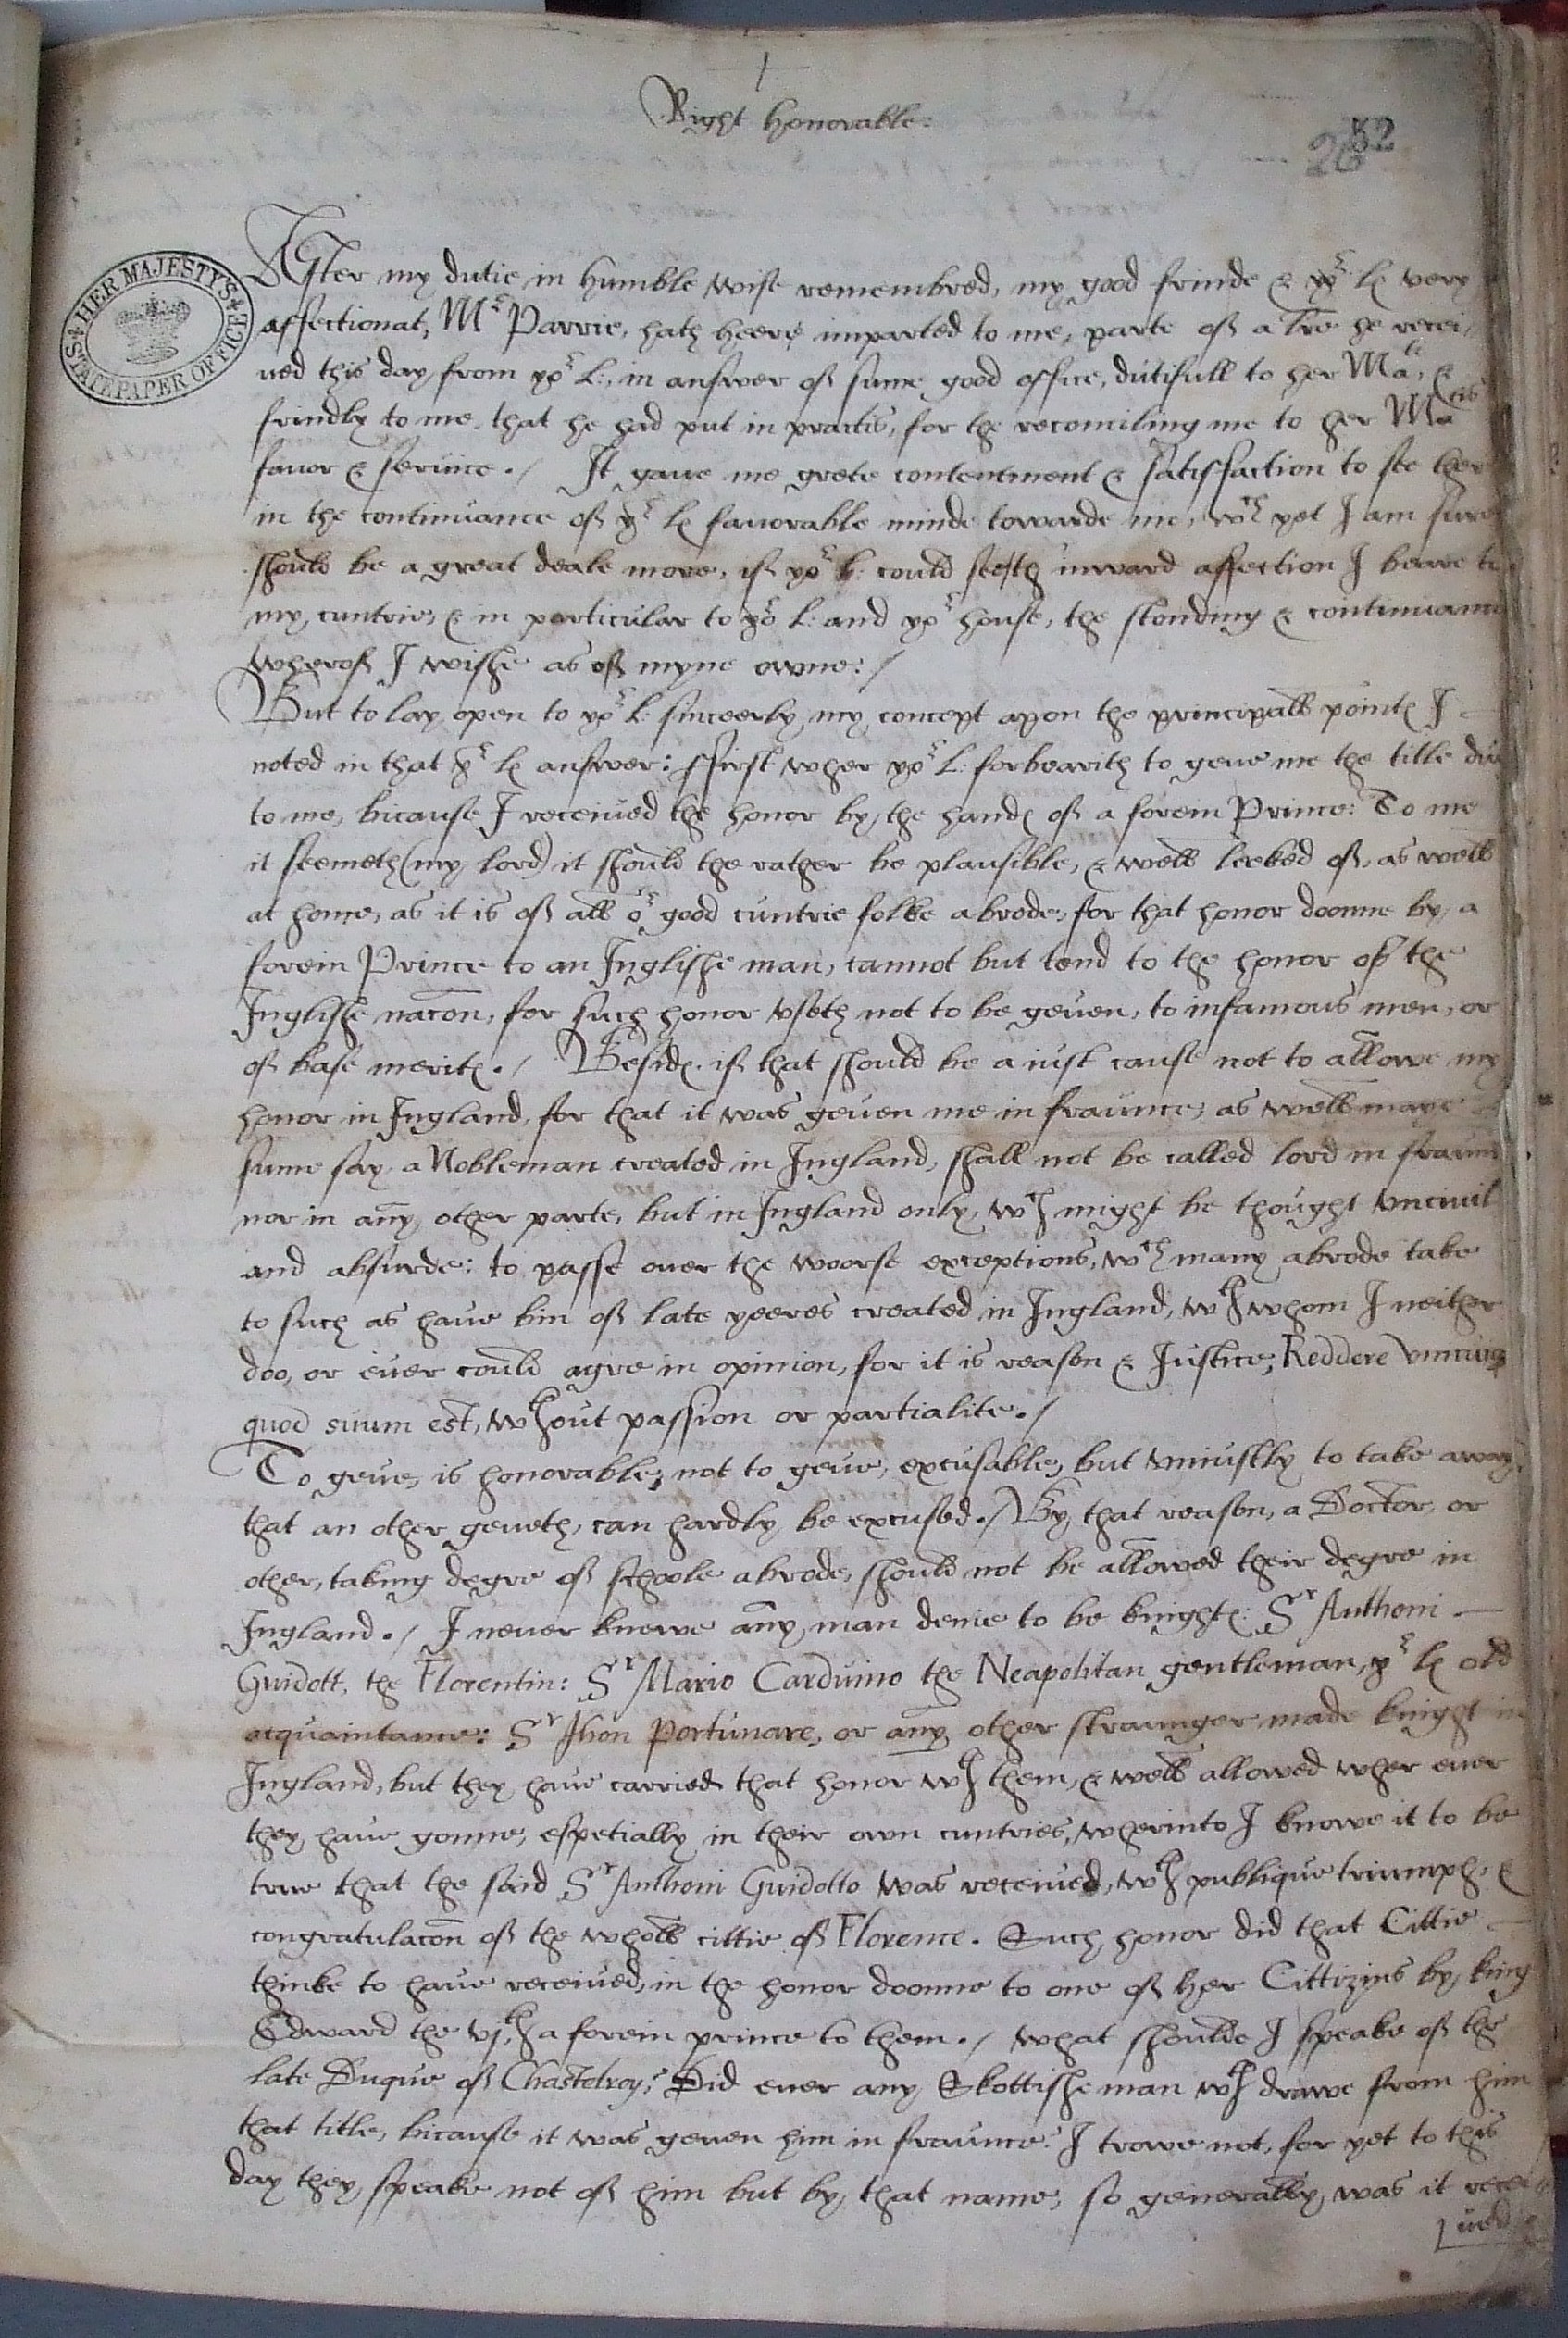 Right honorable:
2652
HER MAJESTY'S STATE PAPER OFFICE
After my dutie in humble wise remembred, my good frinde & yor Ls very
affectionat, Mr Parrie, hath heere imparted to me, parte of a lre he recei,
ued this day from yor L:, in answer of sume good office, dutifull to her Matie, &
frindly to me, that he had put in practis, for the reconciling me to her Maties
fauor & seruice./ It gaue me grete contentment & satisfaction to see ther
in the continuance of yr Ls fauorable minde towarde me, wch yet I am sure
should be a great deale more, if yor L: could see th inward affection I beare to
my cuntrie, & in particular to yor L: and yor house, the standing & continuance
wherof I wishe as of myne owne:/
But to lay open to yor L: sinceerly my concept apon the principall points I
noted in that yr Ls answer: ffirst wher yor L: forbearith to geue me the title due
to me, bicause I receiued the honor by the hands of a forein Prince: To me
it seemeth (my lord) it should the rather be plausible, & well leeked of, as well
at home, as it is of all or good cuntrie folke abrode, for that honor doonne by a
forein Prince to an Inglishe man, cannot but tend to the honor of the
Inglishe nacon, for such honor vseth not to be geuen, to infamous men, or
of base merits./ Besids. if that should be a iust cause not to allowe my
honor in Ingland, for that it was geuen me in fraunce, as well maye
sume say, a Nobleman created in Ingland, shall not be called lord in fraunce
nor in any other parte, but in Ingland only, wch might be thought vnciuil
and absurde: to passe ouer the woorse exceptions, wch many abrode take
to such as haue bin of late yeeres created in Ingland, wth whom I neither
doo, or euer could agre in opinion, for it is reason & Iustice, Reddere vnicuiq
quod suum est, wthout passion or partialite./
To geue, is honorable, not to geue, excusable, but vniustly to take away
that an other geueth, can hardly be excused./ By that reason, a Doctor, or
other, taking degre of schoole abrode, should not be allowed their degre in
Ingland./ I neuer knewe any man denie to be knights: Sr Anthoni
Guidott, the Florentin: Sr Mario Carduino the Neapolitan gentleman, yr Ls old
acquaintance: Sr Jhon Portunare, or any other straunger made knight in
Ingland, but they haue carried that honor wth them, & well allowed wher euer
they haue gonne, espetially in their own cuntries, wherinto I knowe it to be
true that the said Sr Anthoni Guidotto was receiued, wth publique triumph, &
congratulacon of the wholl cittie of Florence. Such honor did that Cittie
thinke to haue receiued, in the honor doonne to one of her Cittizins by king
Edward the vjth a forein prince to them./ what shoulde I speake of the
late Duque of Chastelroy? Did euer any Skottishe man wth drawe from him
that title, bicause it was geuen him in fraunce? I trowe not, for yet to this
day they speake not of him but by that name, so generally was it recei
ued